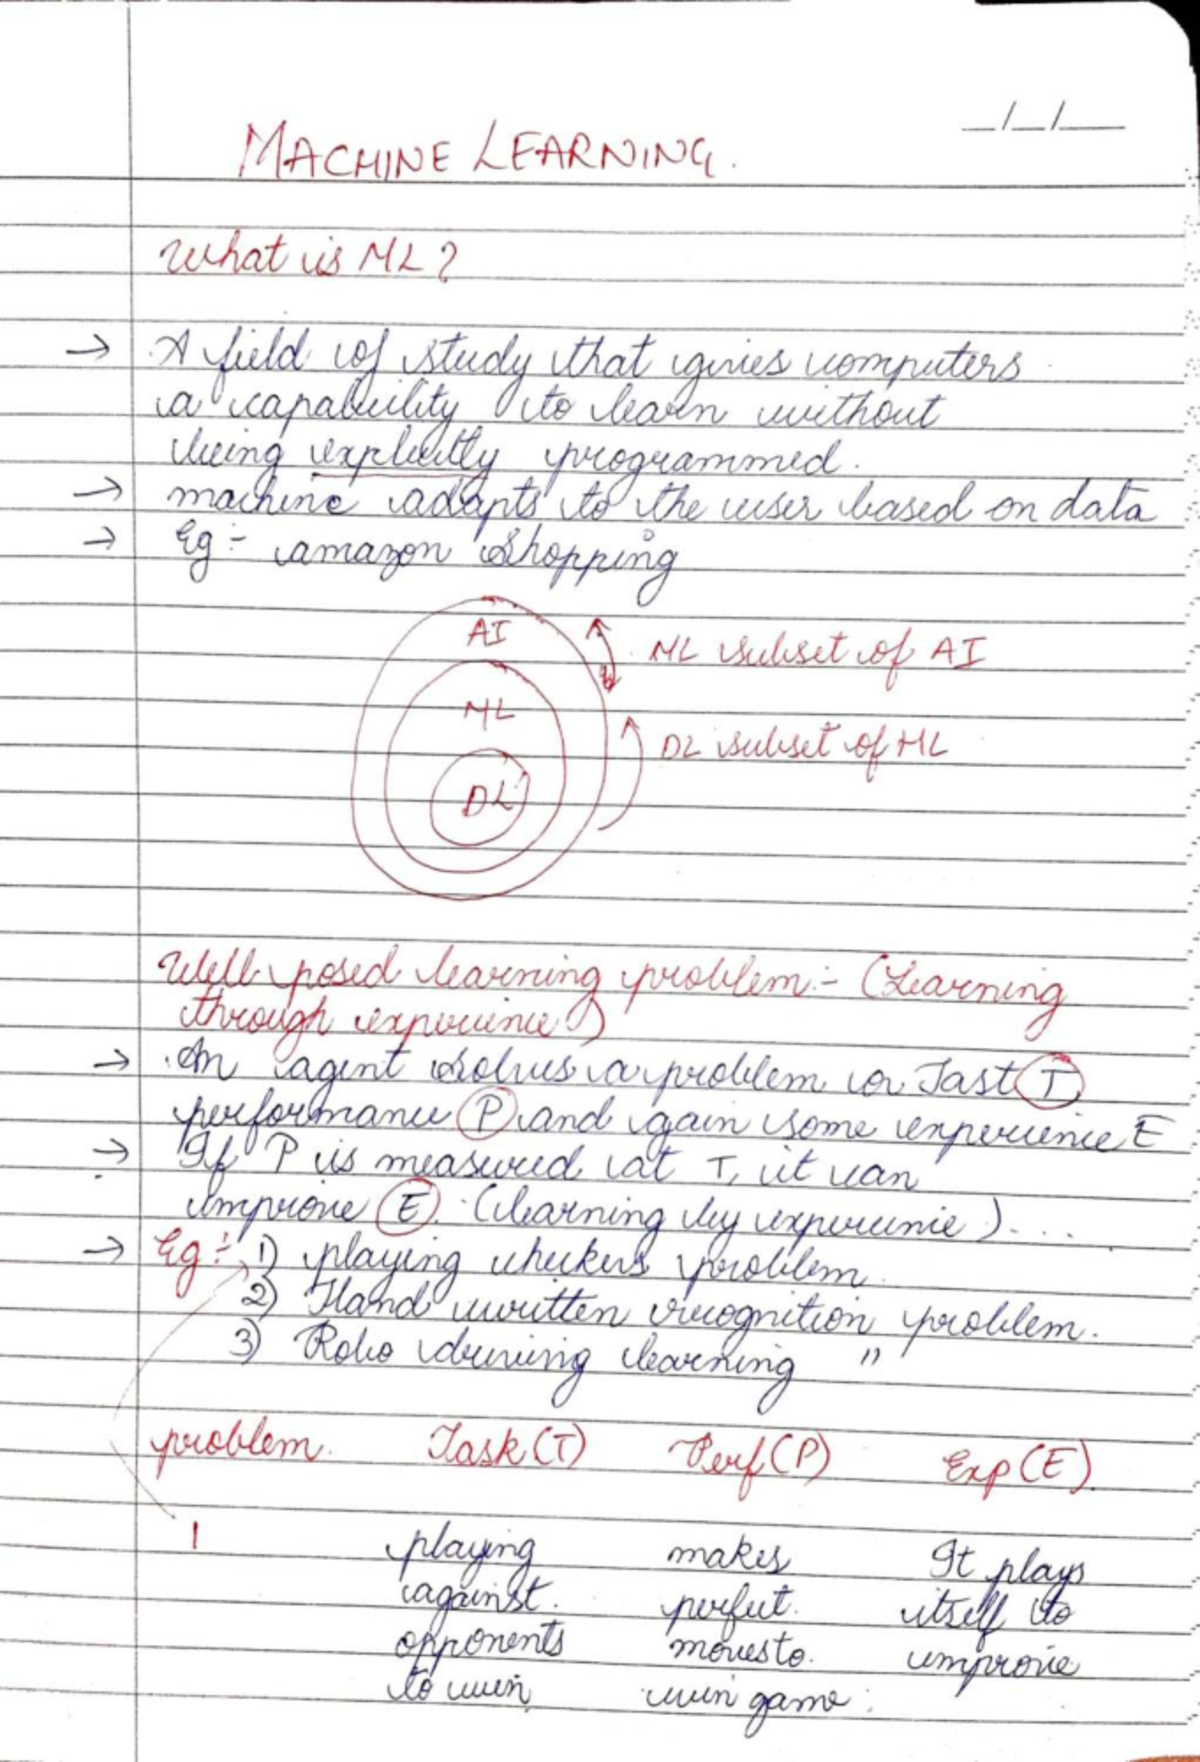 __/__/____
MACHINE LEARNING.
What is ML?
→ A field of study that gives computers
a capability to learn without
being explicitly programmed.
→ machine adapts to the user based on data
→ Eg:- amazon shopping
AI
ML subset of AI
ML
DL subset of ML
DL
Well posed learning problem:- (Learning
through experience)
→ An agent solves a problem or Tast T,
performance P and gain some experience E
→ If P is measured at T, it can
improve E. (learning by experience)....
→ Eg:- 1) playing checkers problem.
2) Hand written recognition problem.
3) Robo driving learning "
problem. Task(T) Perf(P) Exp(E).
1 playing makes It plays
against. perfect. itself to
opponents moves to. improve
to win win game.